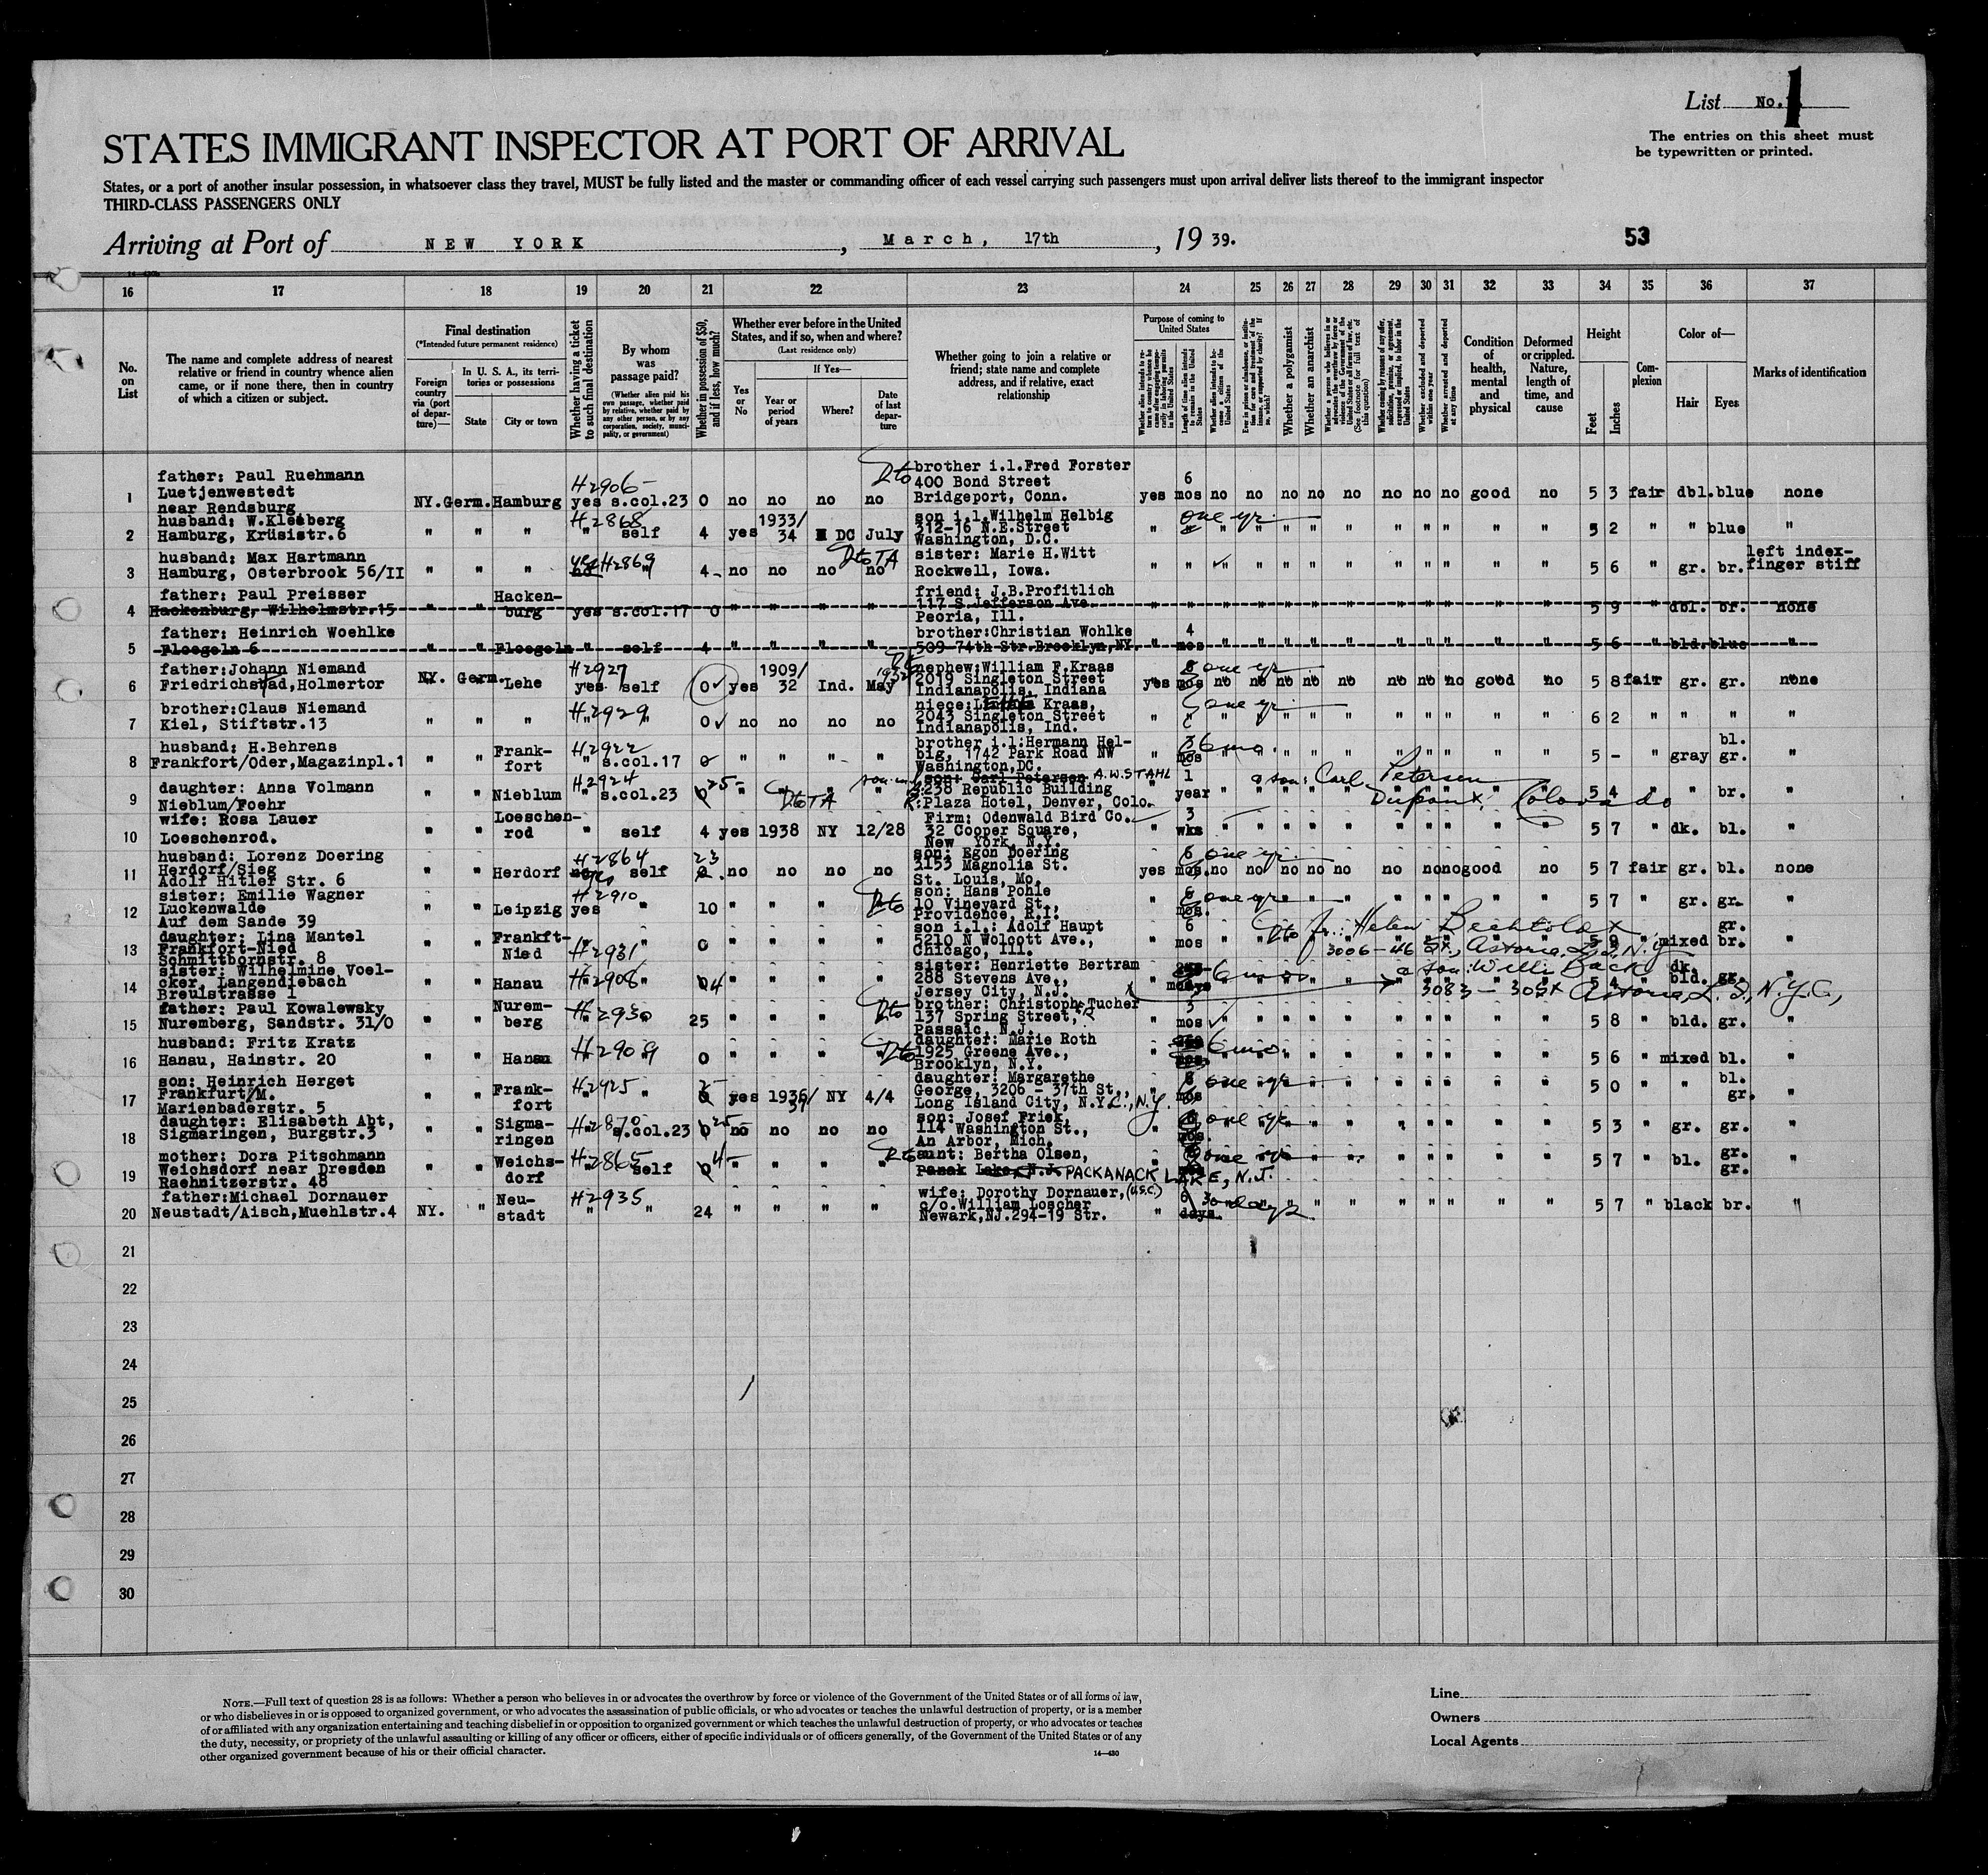 List No. 1
The entries on this sheet must
be typewritten or printed.
STATES IMMIGRANT INSPECTOR AT PORT OF ARRIVAL
States, or a port of another insular possession, in whatsoever class they travel, MUST be fully listed and the master or commanding officer of each vessel carrying such passengers must upon arrival deliver lists thereof to the immigrant inspector
THIRD-CLASS PASSENGERS ONLY
Arriving at Port of NEW YORK, March, 17th, 19 39.
53
16 17 18 19 20 21 22 23 24 25 26 27 28 29 30 31 32 33 34 35 36 37
No. on List
The name and complete address of nearest relative or friend in country whence alien came, or if none there, then in country of which a citizen or subject.
Final destination
(*Intended future permanent residence)
Foreign country via (port of departure)—
In U. S. A., its territories or possessions
State
City or town
Whether having a ticket to such final destination
By whom was passage paid?
(Whether alien paid his own passage, whether paid by relative, whether paid by any other person, or by any corporation, society, municipality, or government)
Whether in possession of $50, and if less, how much?
Whether ever before in the United States, and if so, when and where?
(Last residence only)
If Yes—
Yes or No
Year or period of years
Where?
Date of last departure
Whether going to join a relative or friend; state name and complete address, and if relative, exact relationship
Purpose of coming to United States
Length of time alien intends to remain in the United States
Whether alien intends to become a citizen of the United States
Whether a polygamist
Whether an anarchist
Whether excluded and deported within one year
Whether arrested and deported at any time
Condition of health, mental and physical
Deformed or crippled. Nature, length of time, and cause
Height
Feet
Inches
Complexion
Color of—
Hair
Eyes
Marks of identification
1 father: Paul Ruehmann
Luetjenwestedt
near Rendsburg
NY. Germ. Hamburg H2906- yes s.col.23 0 no no no no
brother i.l.Fred Forster
400 Bond Street
Bridgeport, Conn.
yes 6 mos no no no no no no no no good no 5 3 fair dbl. blue none
2 husband: W.Kleeberg
Hamburg, Krüsistr.6
" " " H2868 " self 4 yes 1933/34 DC July
son i.l.Wilhelm Helbig
312-16 N.E.Street
Washington, D.C.
one yr. 5 2 " " blue "
3 husband: Max Hartmann
Hamburg, Osterbrook 56/II
" " " yes H2869 " 4- no no no no
sister: Marie H.Witt
Rockwell, Iowa.
5 6 " gr. br. left index-
finger stiff
4 father: Paul Preisser
Hackenburg, Wilhelmstr.15
" " Hackenburg yes s.col.17 0 " " " "
friend: J.B.Profitlich
117 S.Jefferson Ave.
Peoria, Ill.
5 9 dbl. br. none
5 father: Heinrich Woehlke
Floegeln 6
" " Floegeln " self 4 " " " "
brother:Christian Wohlke
509-74th Str.Brooklyn,NY.
4 mos 5 6 " bld. blue "
6 father:Johann Niemand
Friedrichstad,Holmertor
NY. Germ. Lehe H2927 yes self 0 yes 1909/32 Ind. May 1932
nephew:William F.Kraas
2019 Singleton Street
Indianapolis, Indiana
yes mos one yr. no no no no no no no no good no 5 8 fair gr. gr. none
7 brother:Claus Niemand
Kiel, Stiftstr.13
" " " H2929 " 0 no no no no
niece: Kraas,
2043 Singleton Street
Indianapolis, Ind.
one yr. 6 2 " " " "
8 husband: H.Behrens
Frankfort/Oder,Magazinpl.1
" " Frankfort H2922 " s.col.17 0 " " " "
brother i.l:Hermann Helbig, 1742 Park Road NW
Washington,DC.
6 mo. 5 - gray bl. gr. "
9 daughter: Anna Volmann
Nieblum/Foehr
" " Nieblum H2924 " s.col.23 25- " " " "
son: Carl Petersen A.W.STAHL
238 Republic Building
R:Plaza Hotel, Denver, Colo.
1 year a son: Carl Petersen
Dupont, Colorado
5 4 " " br. "
10 wife: Rosa Lauer
Loeschenrod.
" " Loeschenrod " self 4 yes 1938 NY 12/28
Firm: Odenwald Bird Co.
32 Cooper Square,
New York, N.Y.
3 wks 5 7 " dk. bl. "
11 husband: Lorenz Doering
Herdorf/Sieg
Adolf Hitler Str. 6
" " Herdorf H2864 yes self 23 no no no no
son: Egon Doering
3153 Magnolia St.
St. Louis, Mo.
yes 6 mos. one yr. no no no no no no no no good no 5 7 fair gr. bl. none
12 sister: Emilie Wagner
Luckenwalde
Auf dem Sande 39
" " Leipzig H2910 yes " 10 " " " "
son: Hans Pohle
10 Vineyard St.,
Providence, R.I.
6 mos. one yr. 5 7 " gr. gr. "
13 daughter: Lina Mantel
Frankfort-Nied
Schmittbornstr. 8
" " Frankft-Nied H2931 " 0 " " " "
son i.l.: Adolf Haupt
5210 N Wolcott Ave.,
Chicago, Ill.
6 mos Dto fr.: Helen Bechtold
3006-46 St., Astoria, L.I., N.Y.
5 9 " mixed gr. br. "
14 sister: Wilhelmine Voelcker, Langendiebach
Breulstrasse 1
" " Hanau H2908 " 4 " " " "
sister: Henriette Bertram
288 Stevens Ave.,
Jersey City, N.J.
6 mos a son: Willi Back
3083-30 St Astoria, L.I., N.Y.C.,
5 4 " dk. bld. gr. "
15 father: Paul Kowalewsky
Nuremberg, Sandstr. 31/0
" " Nuremberg H2930 " 25 " " " "
brother: Christoph Tucher
137 Spring Street,
Passaic, N.J.
3 mos 5 8 " bld. gr. "
16 husband: Fritz Kratz
Hanau, Hainstr. 20
" " Hanau H2909 " 0 " " " "
daughter: Marie Roth
1925 Greene Ave.,
Brooklyn, N.Y.
6 mo. 5 6 " mixed bl. "
17 son: Heinrich Herget
Frankfurt/M.
Marienbaderstr. 5
" " Frankfort H2925 " yes 1936/37 NY 4/4
daughter: Margarethe
George, 3206 - 37th St.,
Long Island City, N.Y.C., N.Y.
6 mos one yr 5 0 " " bl. gr. "
18 daughter: Elisabeth Abt,
Sigmaringen, Burgstr.3
" " Sigmaringen H2870 s.col.23 25 no no no no
son: Josef Friek,
114 Washington St.,
An Arbor, Mich.
one yr 5 3 " gr. gr. "
19 mother: Dora Pitschmann
Weichsdorf near Dresden
Raehnitzerstr. 48
" " Weichsdorf H2865 " self 4- " " " "
aunt: Bertha Olsen,
Panak Lake, N.J. PACKANACK LAKE, N.J.
one yr 5 7 " bl. gr. gr. "
20 father:Michael Dornauer
Neustadt/Aisch,Muehlstr.4
NY. " Neustadt H2935 " " 24 " " " "
wife: Dorothy Dornauer, (U.S.C.)
c/o.William Loscher
Newark,NJ.294-19 Str.
30 days 5 7 " black br. "
21
22
23
24
25
26
27
28
29
30
NOTE.—Full text of question 28 is as follows: Whether a person who believes in or advocates the overthrow by force or violence of the Government of the United States or of all forms of law,
or who disbelieves in or is opposed to organized government, or who advocates the assassination of public officials, or who advocates or teaches the unlawful destruction of property, or is a member
of or affiliated with any organization entertaining and teaching disbelief in or opposition to organized government or which teaches the unlawful destruction of property, or who advocates or teaches
the duty, necessity, or propriety of the unlawful assaulting or killing of any officer or officers, either of specific individuals or of officers generally, of the Government of the United States or of any
other organized government because of his or their official character.
14—430
Line
Owners
Local Agents